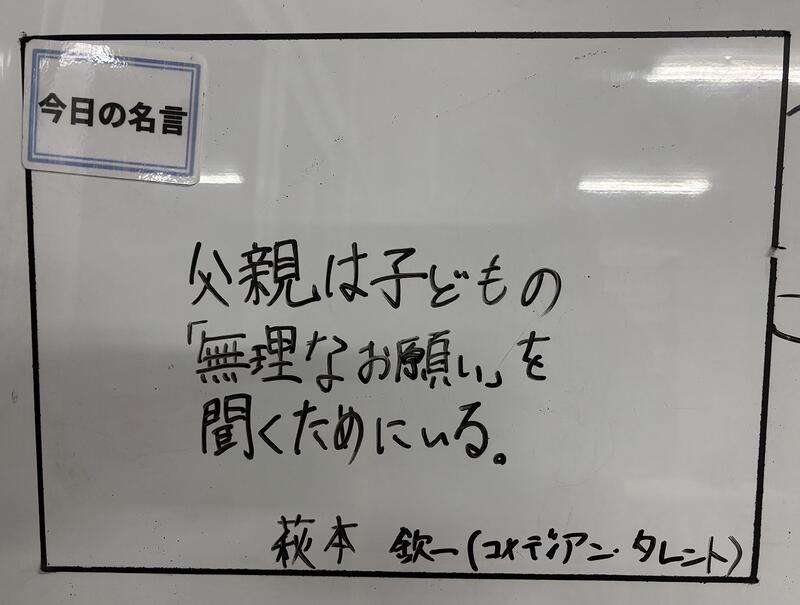 今日の名言
父親は子どもの
「無理なお願い」を
聞くためにいる。
萩本 欽一(コメディアン・タレント)